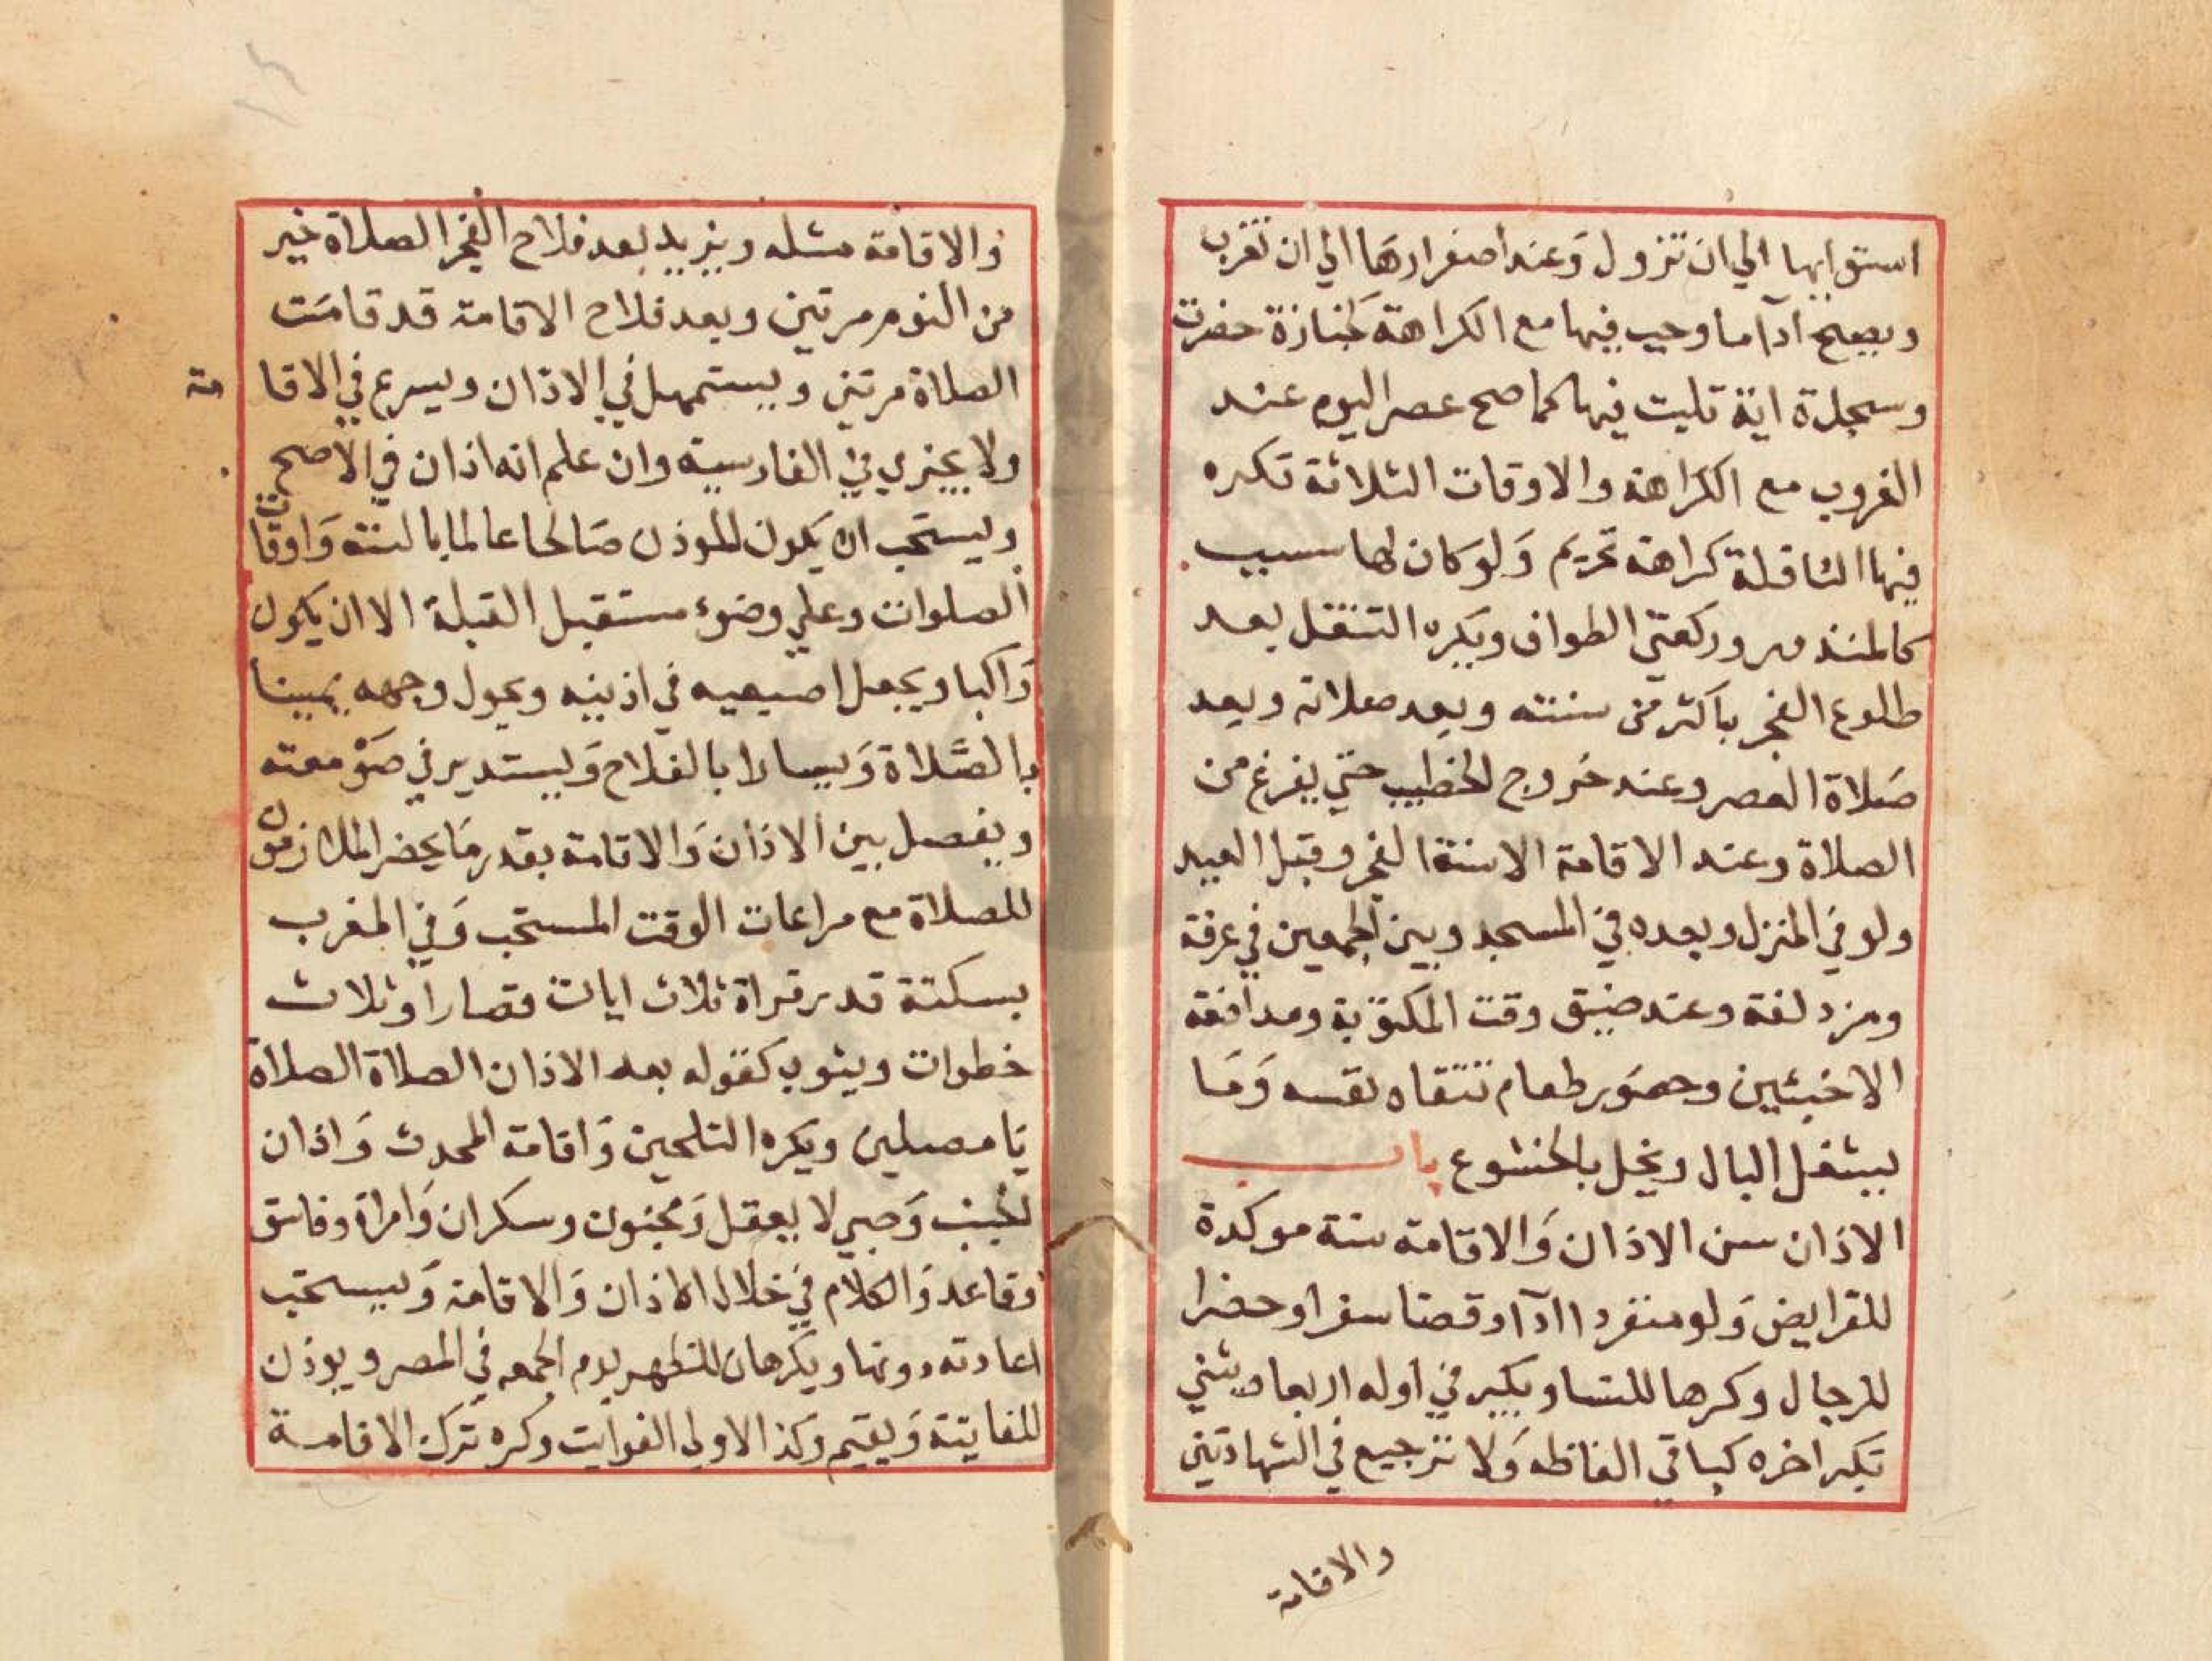 استوايها الي ان تزول وَعند اصفرارهَا الي ان تغرب
ويصح ادآ ما وجب فيها مع الكراهة كَجنازة حضرت
وسجدة اية تليت فيها كما صح عصر اليوم عند
الغروب مع الكراهة والاوقات الثلاثة تكره
فيها النافلة كراهة تحريم وَلو كان لها سبب
كالمنذور وركعتي الطواف ويكره التنفل بعد
طلوع الفجر باكثر من سنته وبعد صلاته وبعد
صَلاة العصر وعند خروج الخطيب حتي يفرغ من
الصلاة وعند الاقامة الا سنة الفجر وقبل العيد
ولو في المنزل وبعده في المسجد وبين الجمعين في عرفة
ومزدلفة وعند ضيق وقت المكتوبة ومدافعة
الاخبثين وحضور طعام تتقاه نفسه وَمَا
يشغل البال ويخل بالخشوع باب
الاذان سن الاذان وَالاقامة سنة موكدة
للفرايض وَلو منفردا ادآ او قضا سفرا وحضرا
للرجال وكرها للنسا ويكبر في اوله اربعا ويثني
تكبير اخره كباقي الفاظه وَلا ترجيع في الشهادتين
والاقامة
وَالاقامة مثله ويزيد بعد فلاح الفجر الصلاة خير
من النوم مرتين وبعد فلاح الاقامة قد قامَت
الصلاة مرتين ويستمهل في الاذان ويسرع في الاقا مة
ولا يجزي في الفارسية وان علم انه اذان في الاصح
ويستحب ان يكون الموذن صَالحا عالما بالسنة وَاوقات
الصلوات وعلي وضوء مستقبل القبلة الا ان يكون
رَاكبا ويجعل اصبعيه في اذنيه ويحول وجهه يمينا
بالصَّلاة وَيسارا بالفلاح وَيستدير في صَوْمعته
ويفصل بين الاذان وَالاقامة بقدر مَا يحضر الملازمون
للصلاة مع مراعات الوقت المستحب وَفي المغرب
بسكتة قدر قراة ثلاث ايات قصار او ثلاث
خطوات ويثوب كقوله بعد الاذان الصلاة الصلاة
يَا مصلين ويكره التلحين وَاقامة المحدث وَاذان
الجنب وَصبي لا يعقل وَمجنون وسكران وَامراة وفاسق
وقاعد وَالكلام في خلال الاذان وَالاقامة وَيستحب
اعادته دونها ويكرهان للظهر يوم الجمعه في المصر ويوذن
للفايتة وَيقيم وَكذا الاولي الفوايت وكره تَرك الاقامة